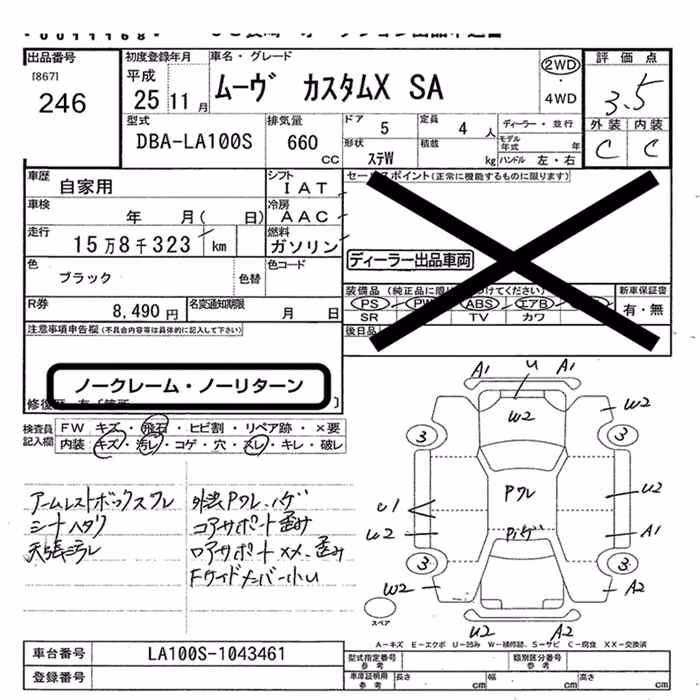 出品番号
[867]
246
初度登録年月
平成
25 11月
車名・グレード
ムーヴ カスタムX SA
2WD
・
4WD
評価点
3.5
外装 内装
C C
型式
DBA-LA100S
排気量
660
CC
ドア 5
定員 4 人
ディーラー・並行
モデル年式 年
形状 ステW
積載 kg
ハンドル 左・右
車歴
自家用
シフト
IAT
車検
年 月( 日)
冷房
AAC
走行
15万8千323 km
燃料
ガソリン
色
ブラック
色替
色コード
R券
8,490円
名変通知期限
月 日
セールスポイント(正常に機能するものに限ります)
ディーラー出品車両
装備品(純正品に限り つけてください)
PS PW ABS エアB
SR TV カワ
新車保証書
有・無
後日品
注意事項申告欄(不具合内容等は具体的に記入して下さい)
ノークレーム・ノーリターン
修復歴
検査員
記入欄
FW キズ・飛石・ヒビ割・リペア跡・×要
内装 キズ・汚レ・コゲ・穴・スレ・キレ・破レ
アームレストボックスワレ
シートハタク
外装Pワレ、ハゲ
コアサポート歪み
ロアサポートXX、歪み
Fサイドメンバー小U
A1 U A1
W2
W2
3 3
U1
Pワレ
U2
U2
Pハゲ
A1
3 3
W2
A2
U2 A2
スペア
A-キズ E-エクボ U-凹み W-補修跡、S-サビ C-腐食 XX-交換済
車台番号
LA100S-1043461
登録番号
型式指定番号
参考
類別区分番号
参考
車庫証明用
参考
長さ cm
幅 cm
高さ cm